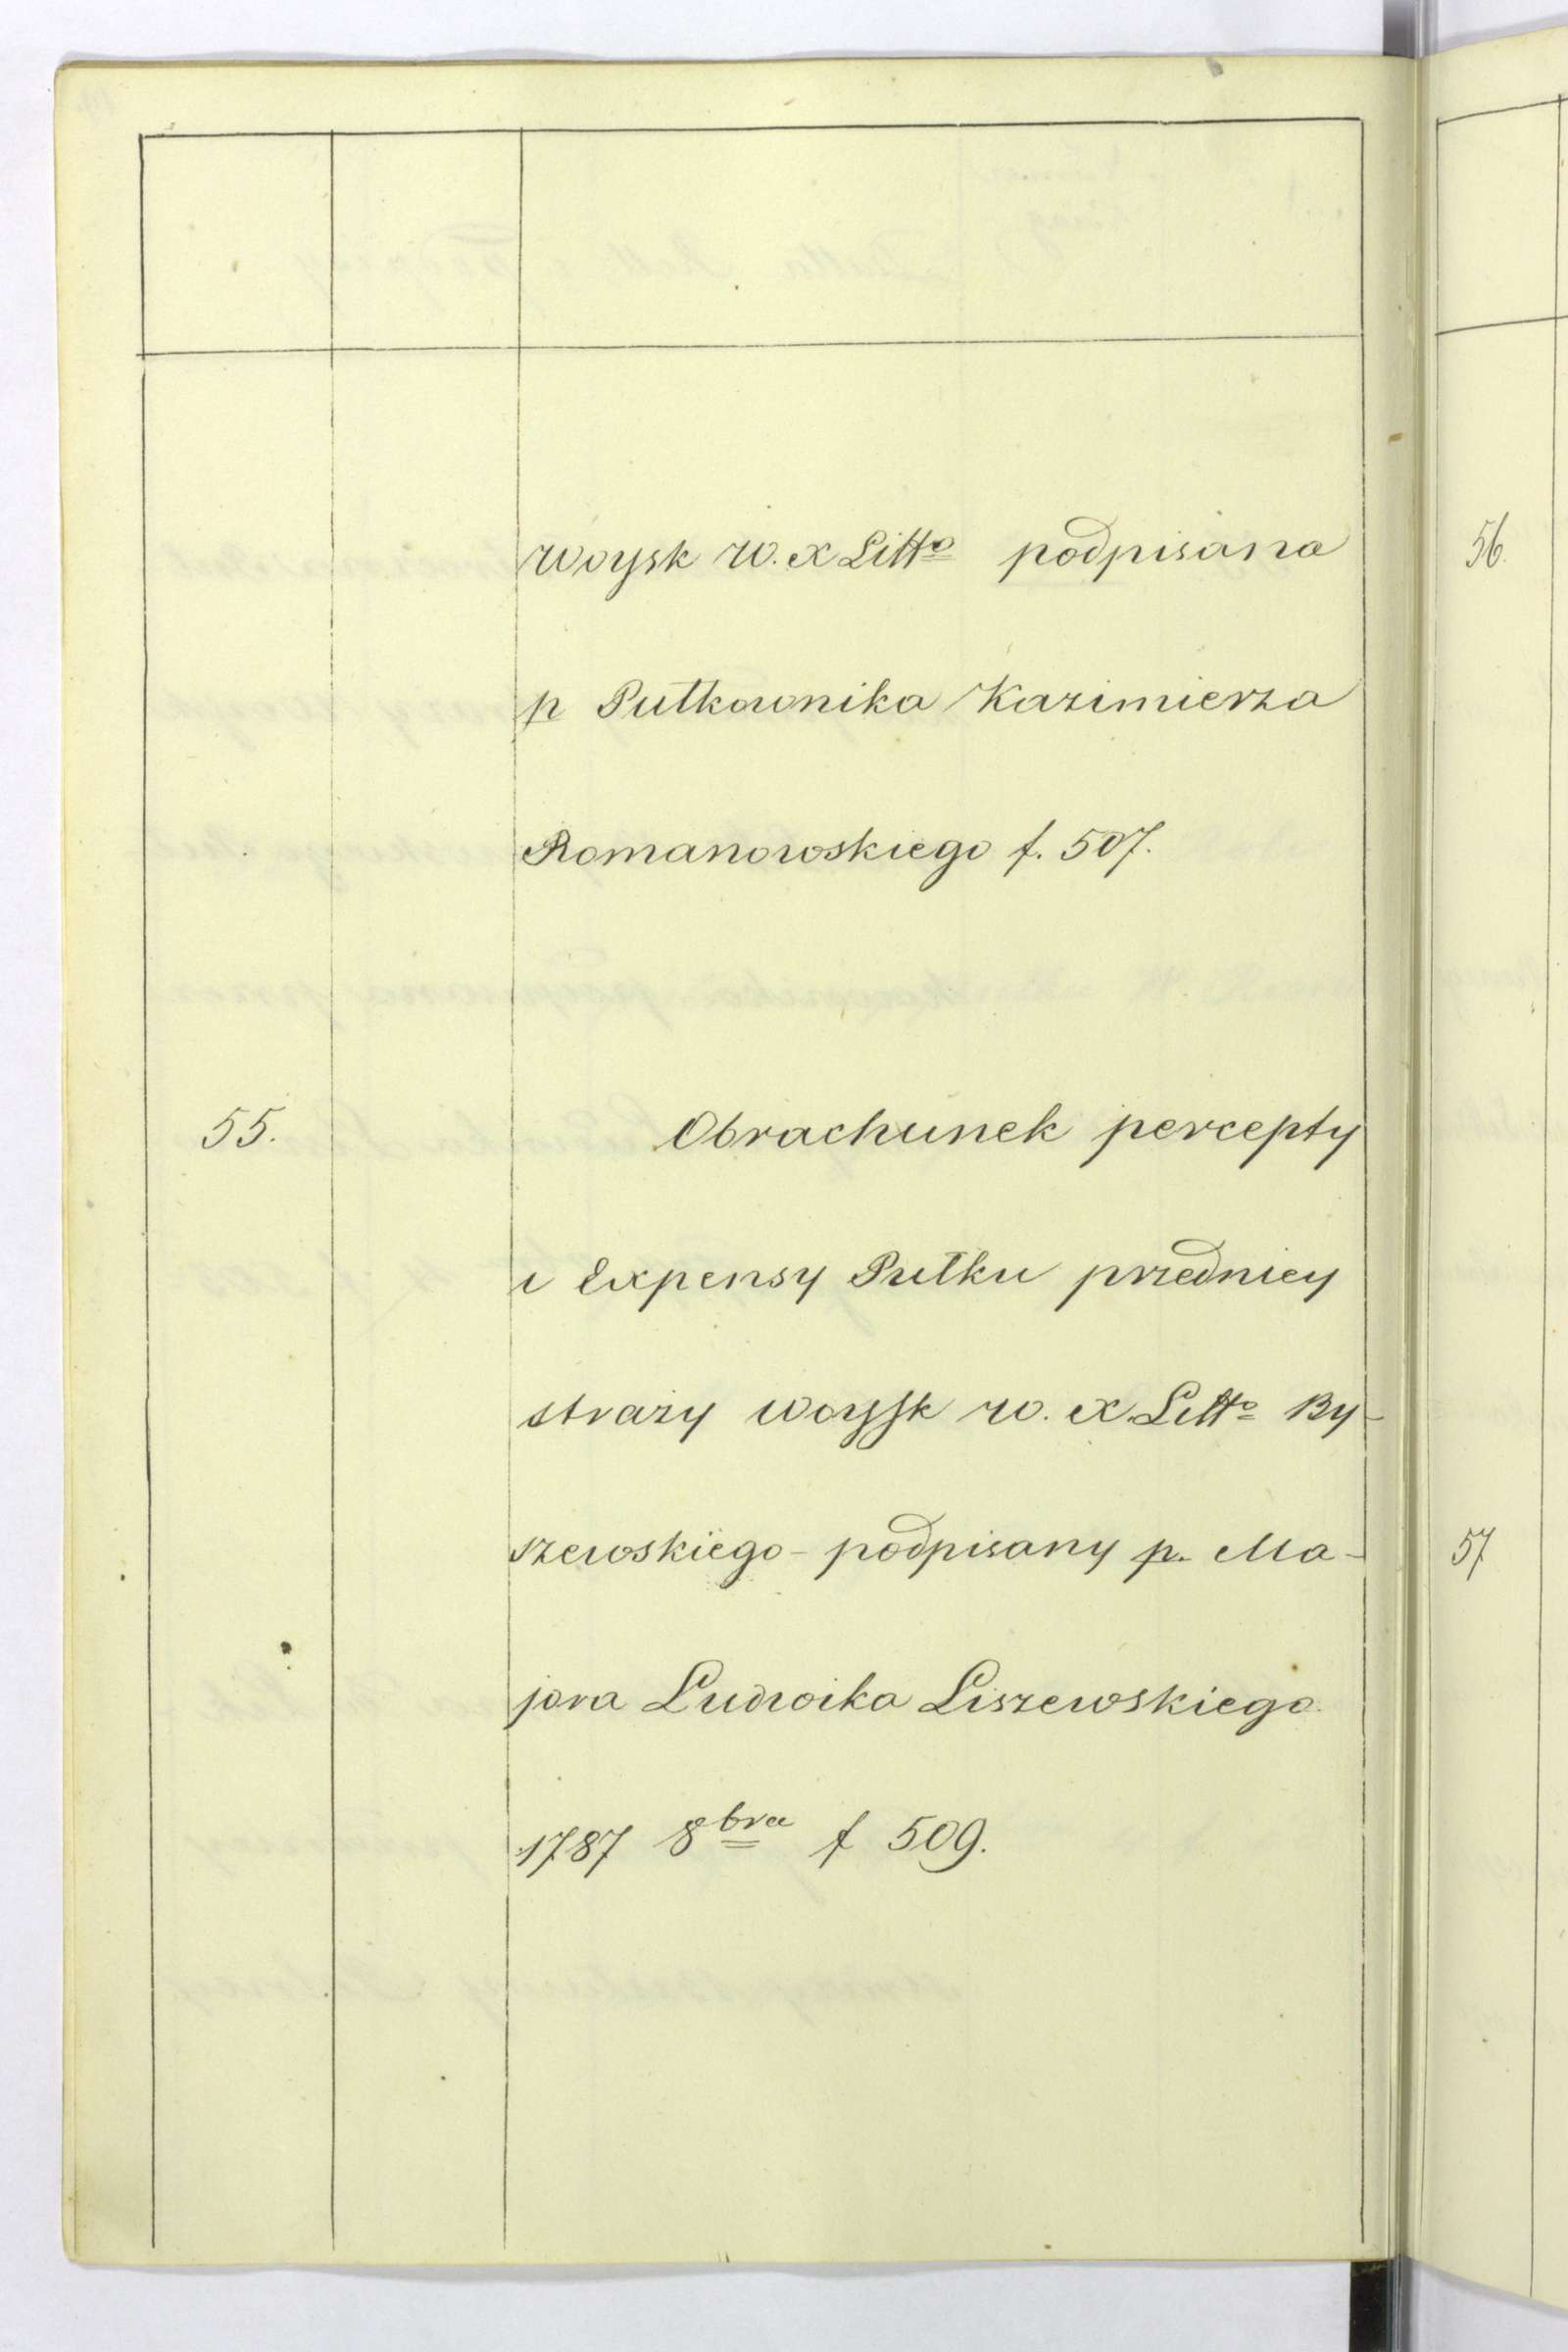 woysk w. x Litto podpisana
p Pułkownika Kazimierza
Romanowskiego f. 507.
55. Obrachunek percepty
i Expensy Pułku przedniey
straży woysk w. x Litto By-
szewskiego - podpisany p. Ma-
jora Ludwika Liszewskiego.
1787 8bra f 509.
56.
57